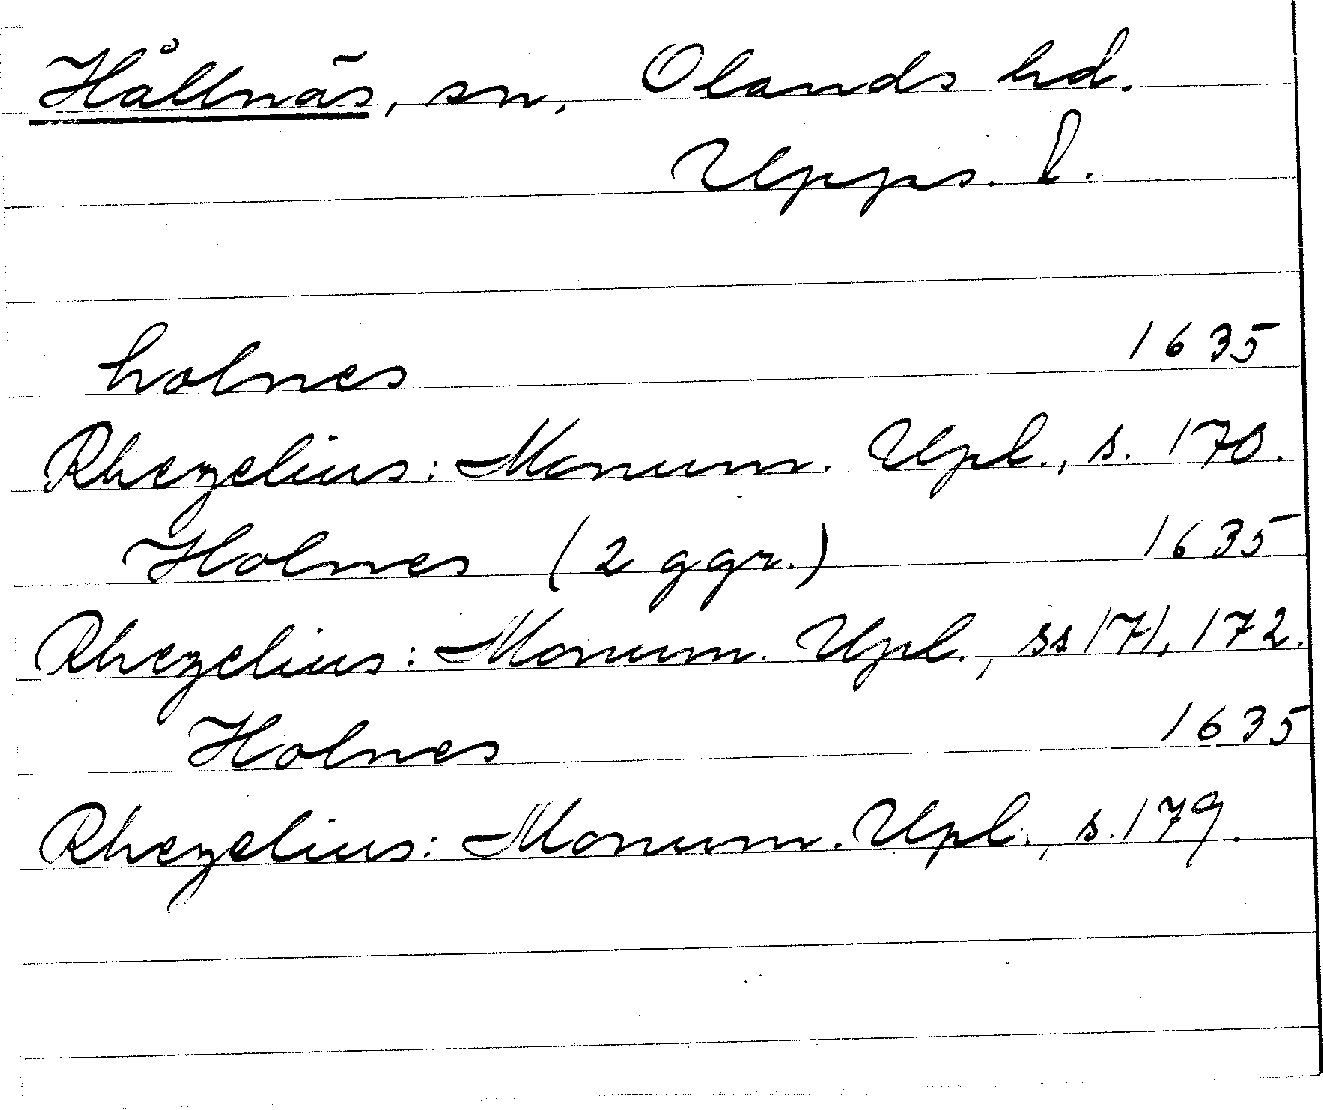 Hållnäs, sn, Olands hd.
Upps. l.
holnes 1635
Rhezelius: Monum. Upl., s. 170.
Holnes (2 ggr.) 1635
Rhezelius: Monum. Upl., ss 171, 172.
Holnes 1635
Rhezelius: Monum. Upl., s. 179.